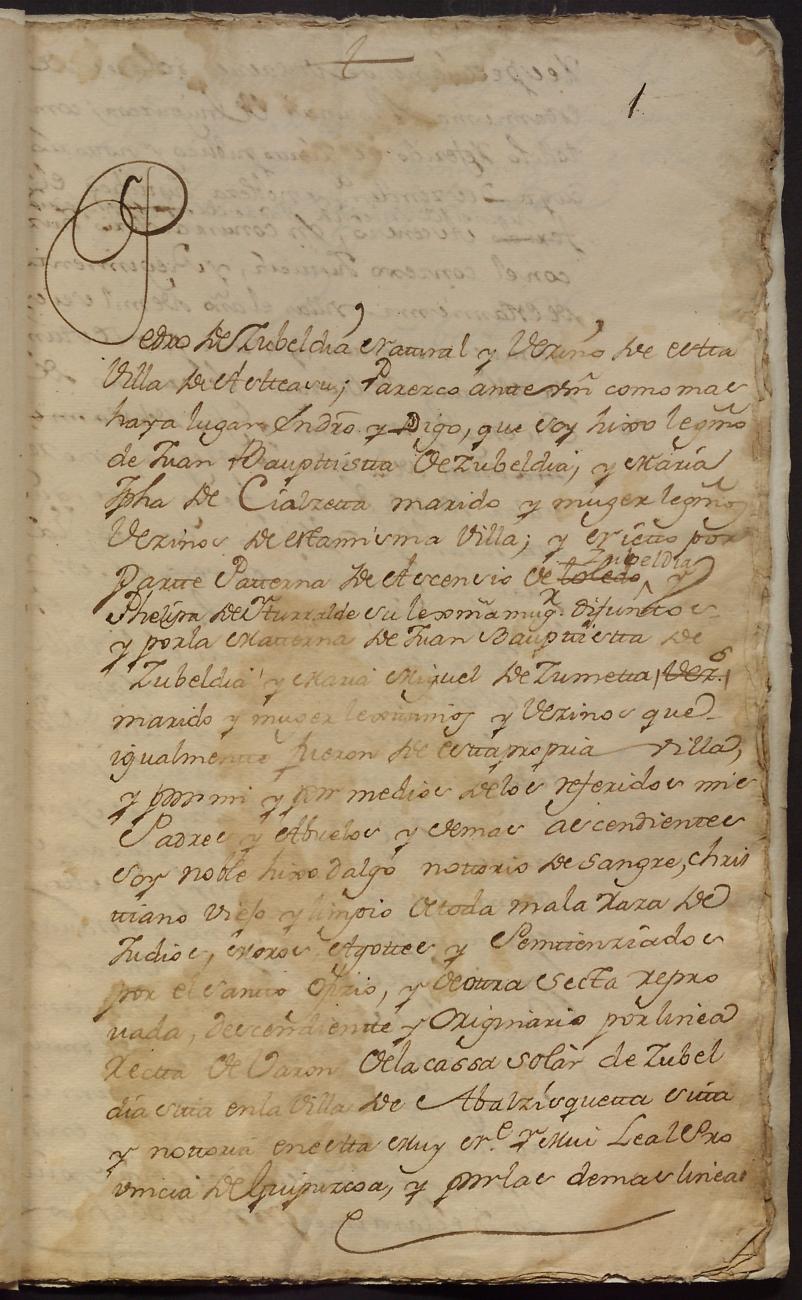 1
Pedro de Zubeldia, natural y Vezino de estta
Villa de Astteasu; Parezco ante Vm como mas
haya lugar en dro y Digo, que soy hixo legmo
de Juan Bapttistta de Zubeldia, y Maria
Jpha de Cialzetta marido y muger legmos
Vezinos de esttamisma Villa; y nietto por
partte Patterna de Ascensio de toledo Zubeldia y
Phelipa de Yturralde su lexma mugr difunttos
y por la Matterna de Juan Bapttistta de
Zubeldia y Maria Miguel de Zumetta, Vezos
marido y muger lexittimos y Vezinos que
igualmentte fueron de estta propria Villa,
y por mi y por medios de los referidos mis
Padres y Abuelos y demas ascendienttes
soy noble hixo dalgo nottorio de sangre, chris
ttiano viejo y limpio de toda mala raza de
Judios, Moros Agottes y Penittenziados
por el Santto Ofizio, y de ottra secta repro
vada, descendientte y Originario por linea
rectta de Varon de la cassa solar de Zubel
dia sitta en la Villa de Abalzisquetta sitta
y nottoria en estta Muy Ne. y Mui Leal Pro
vincia de Guipuzcoa, y por las demas lineas